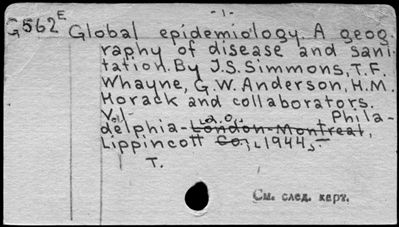 -1-
G562E Global epidemiology. A geog
raphy of disease and sani
tation. By J.S. Simmons, T.F.
Whayne, G.W. Anderson, H.M.
Horack and collaborators.
V.1- Phila-
delphia-London-Montreal, a.o.,
Lippincott Co., 1944,-
T.
См. след. карт.